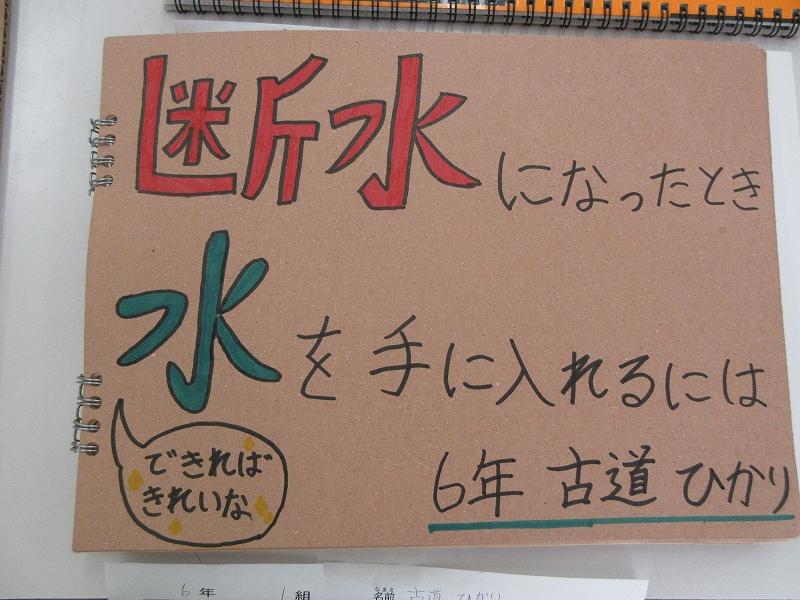 断水になったとき
水を手に入れるには
できれば
きれいな
6年 古道 ひかり
6年 1組 名前 古道 ひかり